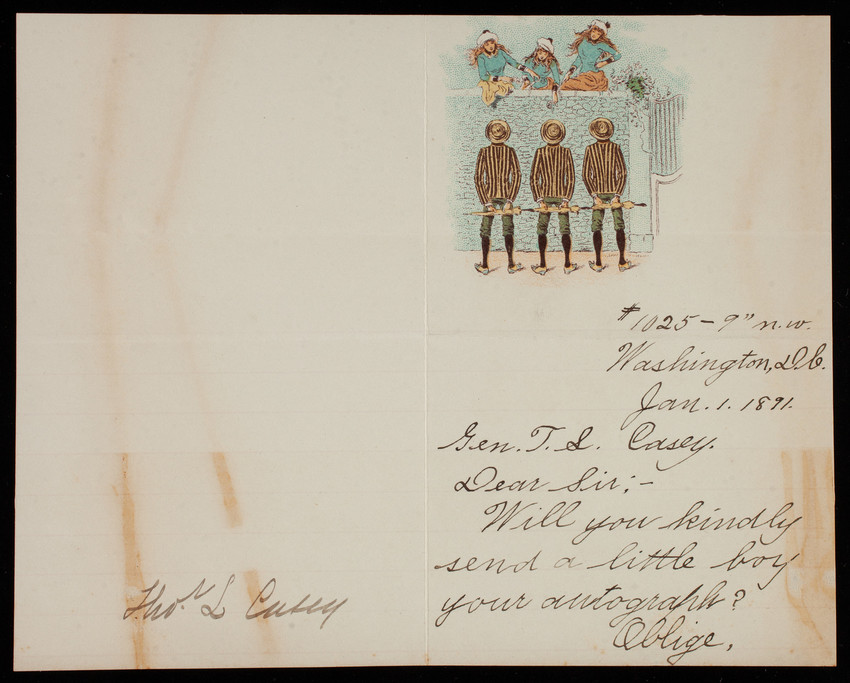 #1025-9" n.w.
Washington, D.C.
Jan. 1. 1891.
Gen. T. L. Casey.
Dear Sir:-
Will you kindly
send a little boy
your autograph?
Oblige,
Thos. L Casey